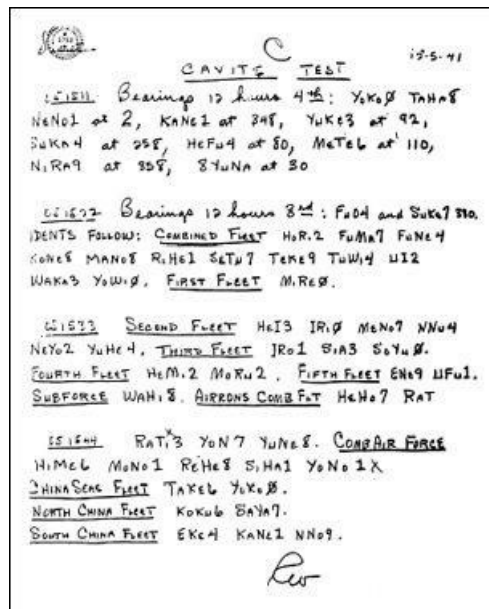 C
CAVITE TEST
Bearings 12 hours 4th: YoKo0 TAHA8
NeNo1 at 2, KANe1 at 348, YuKe3 at 92,
SuKA4 at 258, HeFu4 at 80, MeTe6 at 110,
NiRA9 at 358, 8YuNA at 30
Bearings 12 hours 3rd: FuO4 and SuKe7
IDENTS FOLLOW: COMBINED FLEET HoRi2 FuMA7 FuNe4
KoNe8 MANo8 RiHe1 SeTu7 TeKe9 TuWi4 UI2
WAKA3 YoWi0. FIRST FLEET MiRe0.
SECOND FLEET HeI3 IRi0 MeNo7 NNu4
NeYo2 YuHe4. THIRD FLEET IRo1 SiA3 SoYu0.
FOURTH FLEET HeMi2 MoRu2. FIFTH FLEET ENe9 UFu1.
SUBFORCE WAHi8. AIRRONS COMB FLT HeHo7 RAT
RATi3 YoN7 YuNe8. COMB AIR FORCE
HiMe6 MoNo1 ReHe8 SiHA1 YoNo1X
CHINA SEAS FLEET TAKE6 YoKo0.
NORTH CHINA FLEET KoKu6 SAYA7.
SOUTH CHINA FLEET EKe4 KANe1 NNo9.